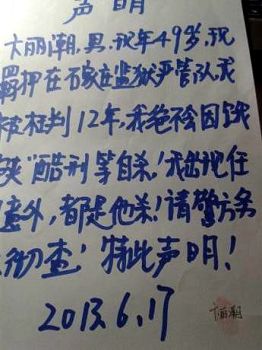 声明
卞丽潮，男，现年49岁，现
羁押在石家庄监狱严管队，我
被枉判12年，我绝不会因饿
"酷刑等自杀！我出现任
意外，都是他杀！请警方务
彻查！特此声明！
2013.6.17
卞丽潮